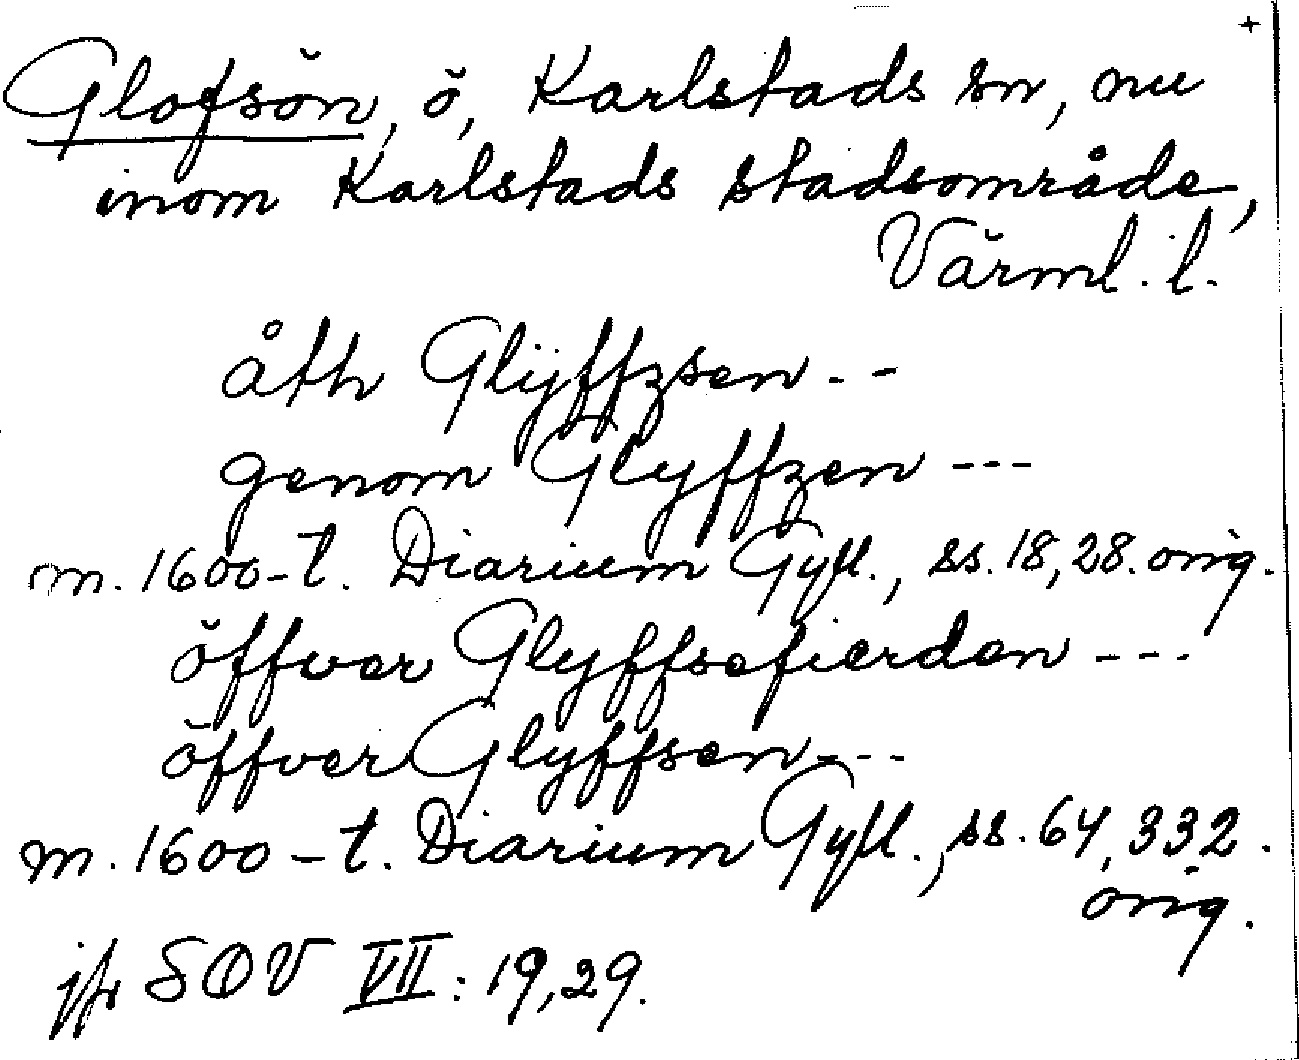 +
Glofsön, ö, Karlstads sn, nu
inom Karlstads stadsområde,
Värml. l.
åth Glÿffzsen - -
genom Glyffzen - - -
m. 1600-t. Diarium Gyll., ss. 18, 28. orig.
öffver Glyffsefierden - - -
öffver Glyffsen - - -
m. 1600-t. Diarium Gyll., ss. 64, 332.
orig.
jfr SOV VII: 19, 29.